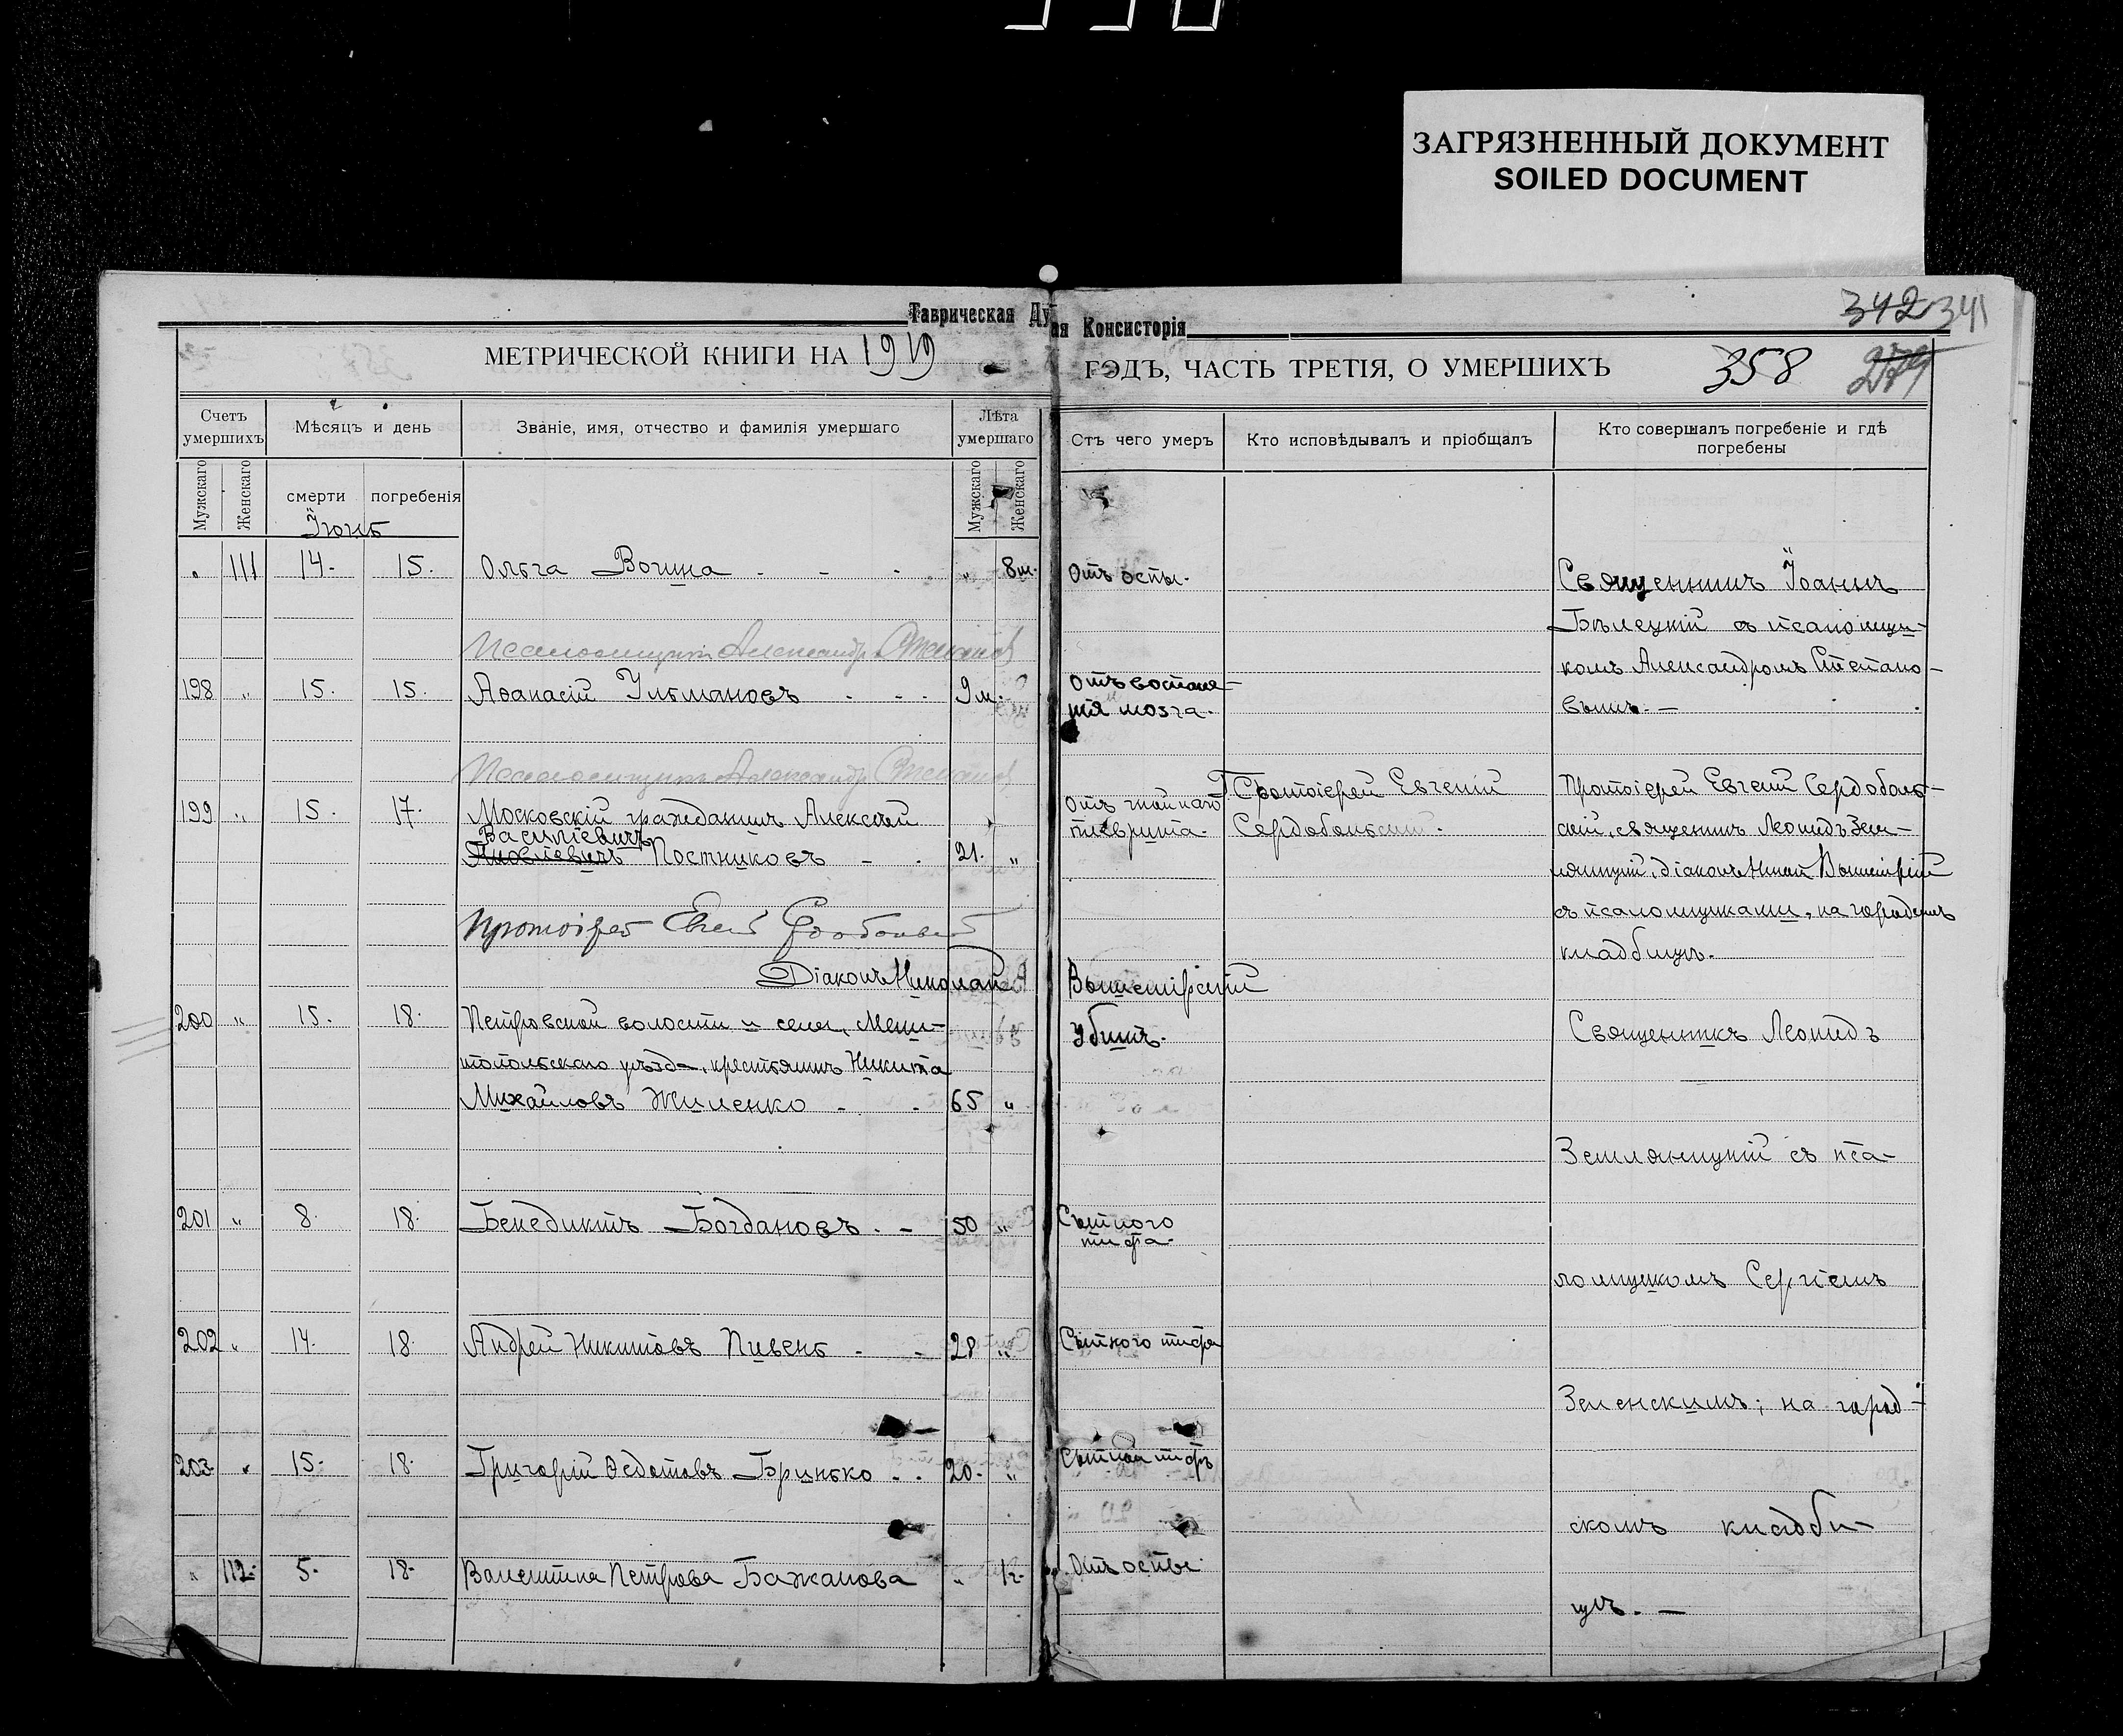 ЗАГРЯЗНЕННЫЙ ДОКУМЕНТ
SOILED DOCUMENT
Таврическая Ду
ая Консисторія
342 341
МЕТРИЧЕСКОЙ КНИГИ НА 1919
ГОДЪ, ЧАСТЬ ТРЕТІЯ, О УМЕРШИХЪ
358 279
Счетъ умершихъ
Мѣсяцъ и день
Званіе, имя, отчество и фамилія умершаго
Лѣта умершаго
Отъ чего умеръ
Кто исповѣдывалъ и пріобщалъ
Кто совершалъ погребеніе и гдѣ погребены
Мужскаго Женскаго смерти погребенія Мужскаго Женскаго
Іюнь
" 111 14. 15. Ольга Вогина - - - " 8 м. Отъ оспы.
Священникъ Іоаннъ
Бѣлецкій съ псаломщи-
комъ Александромъ Степано-
вымъ. —
Псаломщикъ Александръ Степановъ
198 " 15. 15. Аѳанасій Ульмановъ - - - 9 м. Отъ воспале-
нія мозга.
Псаломщикъ Александръ Степановъ
199 " 15. 17. Московскій гражданинъ Алексѣй
Васильевичъ
Яковлевичъ Постниковъ - - 21. "
Отъ гнойнаго
плеврита.
Протоіерей Евгеній
Сердобольскій.
Протоіерей Евгеній Сердоболь-
скій, священникъ Леонидъ Зем-
ляницкій, діаконъ Никол.
съ псаломщиками, на городскомъ
кладбищѣ.
Протоіерей Евгеній Сердобольскій
Діаконъ Николай
200 " 15. 18. Петровской волости и села, Мели-
топольскаго уѣзда, крестьянинъ Никита
Михайловъ Жиленко - - 65 "
Убитъ.
Священникъ Леонидъ
Земляницкій съ пса-
201 " 8. 18. Бенедиктъ Богдановъ. - 50 " Сыпного
тифа.
ломщикомъ Сергіемъ
202 " 14. 18. Андрей Никитовъ Пивень - - 28 " Сыпного тифа
Зеленскимъ; на город-
203 " 15. 18. Григорій Ѳедотовъ Бринько - . 20. " Сыпной тифъ
скомъ кладби-
" 112. 5. 18. Валентина Петрова Бажанова " Отъ оспы
щѣ. —